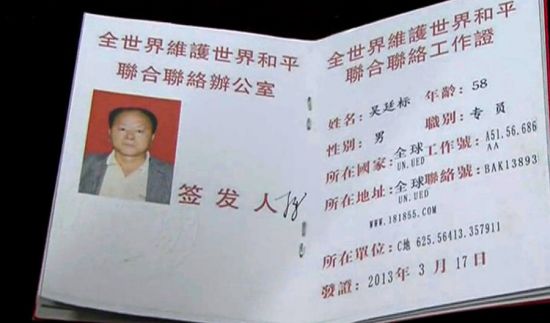 全世界維護世界和平
聯合聯絡辦公室
签发人
全世界維護世界和平
聯合聯絡工作證
姓名: 吴廷标 年齡: 58
性别: 男 職别: 专员
所在國家: 全球 工作號: A51.56.686
UN.UED AA
所在地址: 全球 聯絡號: BAK13893
UN.UED
WWW.181855.COM
所在單位: C地 625.56413.357911
發證: 2013年 3 月 17日